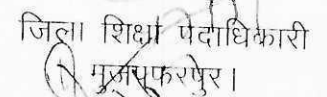 जिला शिक्षा पदाधिकारी
मुजफ्फरपुर।